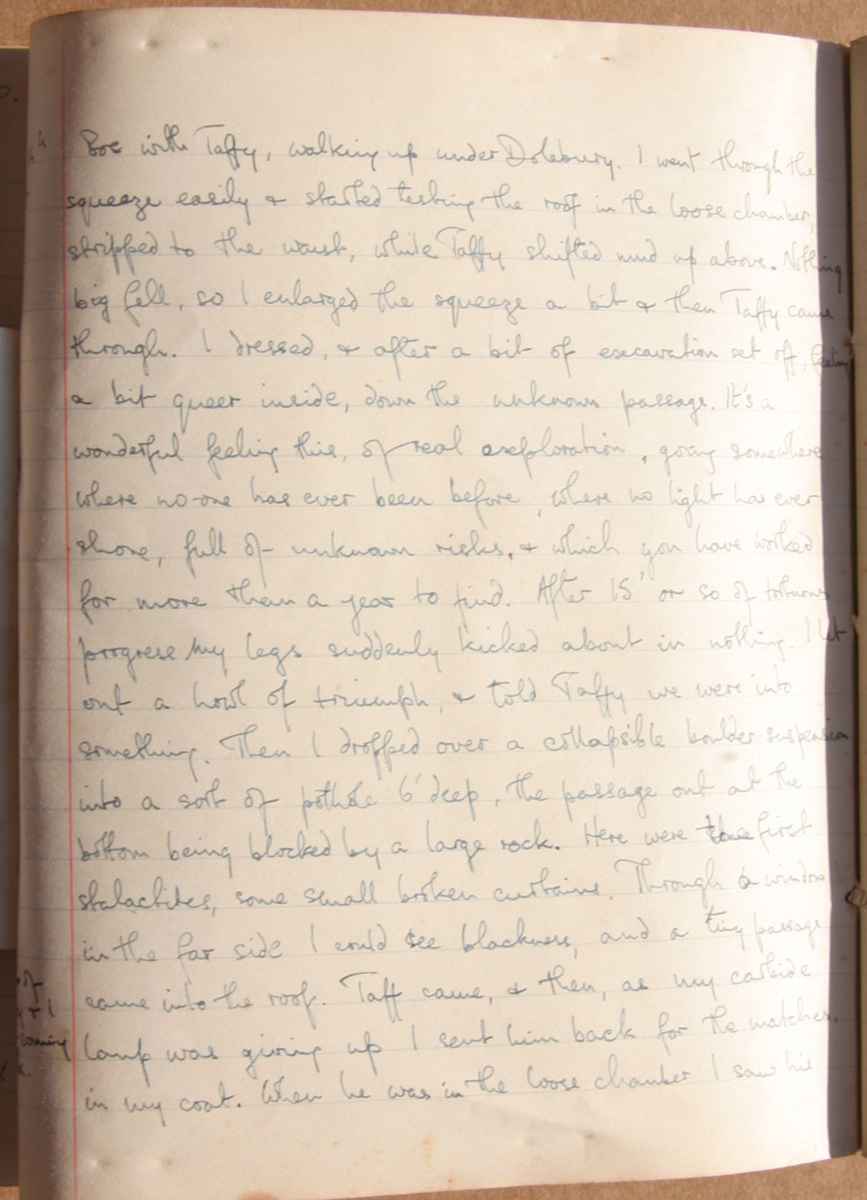 Box with Taffy, walking up under Dolebury. I went through the
squeeze easily & started testing the roof in the loose chamber,
stripped to the waist, while Taffy shifted mud up above. Nothing
big fell, so I enlarged the squeeze a bit & then Taffy came
through. I dressed, & after a bit of excavation set off, feeling
a bit queer inside, down the unknown passage. It's a
wonderful feeling this, of real exploration, going somewhere
where no-one has ever been before, where no light has ever
shone, full of unknown risks, & which you have worked
for more than a year to find. After 15' or so of tortuous
progress my legs suddenly kicked about in nothing. I let
out a howl of triumph, & told Taffy we were into
something. Then I dropped over a collapsible boulder suspension
into a sort of pothole 6' deep, the passage out at the
bottom being blocked by a large rock. Here were the first
stalactites, some small broken curtains. Through a window
in the far side I could see blackness, and a tiny passage
came into the roof. Taff came, & then, as my carbide
lamp was giving up I sent him back for the matches
in my coat. When he was in the loose chamber I saw his